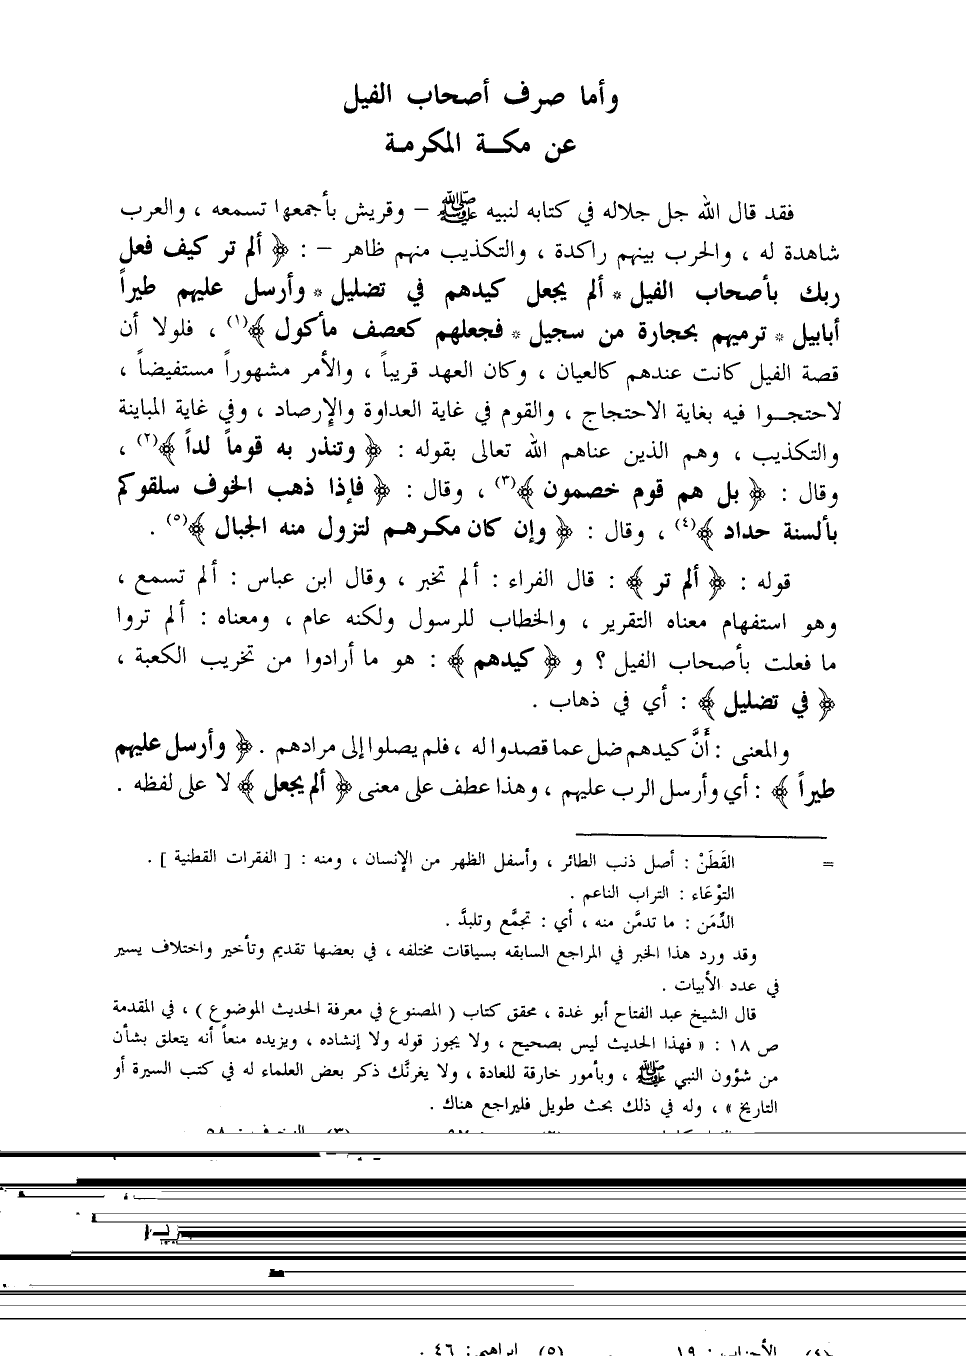 وأما صرف أصحاب الفيل
عن مكـــة المكرمـة
فقد قال الله جل جلاله في كتابه لنبيه ﷺ – وقريش بأجمعها تسمعه ، والعرب
شاهدة له ، والحرب بينهم راكدة ، والتكذيب منهم ظاهر – : ﴿ ألم تر كيف فعل
ربك بأصحاب الفيل * ألم يجعل كيدهم في تضليل * وأرسل عليهم طيراً
أبابيل * ترميهم بحجارة من سجيل * فجعلهم كعصف مأكول ﴾(١) ، فلولا أن
قصة الفيل كانت عندهم كالعيان ، وكان العهد قريباً ، والأمر مشهوراً مستفيضاً ،
لاحتجــوا فيه بغاية الاحتجاج ، والقوم في غاية العداوة والإرصاد ، وفي غاية المباينة
والتكذيب ، وهم الذين عناهم الله تعالى بقوله : ﴿ وتنذر به قوماً لداً ﴾(٢) ،
وقال : ﴿ بل هم قوم خصمون ﴾(٣) ، وقال : ﴿ فإذا ذهب الخوف سلقوكم
بألسنة حداد ﴾(٤) ، وقال : ﴿ وإن كان مكـرهـم لتزول منه الجبال ﴾(٥) .
قوله : ﴿ ألم تر ﴾ : قال الفراء : ألم تخبر ، وقال ابن عباس : ألم تسمع ،
وهو استفهام معناه التقرير ، والخطاب للرسول ولكنه عام ، ومعناه : ألم تروا
ما فعلت بأصحاب الفيل ؟ و ﴿ كيدهم ﴾ : هو ما أرادوا من تخريب الكعبة ،
﴿ في تضليل ﴾ : أي في ذهاب .
والمعنى : أَنَّ كيدهم ضل عما قصدوا له ، فلم يصلوا إلى مرادهم . ﴿ وأرسل عليهم
طيراً ﴾ : أي وأرسل الرب عليهم ، وهذا عطف على معنى ﴿ ألم يجعل ﴾ لا على لفظه .
= القَطَنْ : أصل ذنب الطائر ، وأسفل الظهر من الإنسان ، ومنه : [ الفقرات القطنية ] .
التوْغَاء : التراب الناعم .
الدِّمَن : ما تدمَّن منه ، أي : تجمَّع وتلبدَّ .
وقد ورد هذا الخبر في المراجع السابقه بسياقات مختلفه ، في بعضها تقديم وتأخير واختلاف يسير
في عدد الأبيات .
قال الشيخ عبد الفتاح أبو غدة ، محقق كتاب ( المصنوع في معرفة الحديث الموضوع ) ، في المقدمة
ص ١٨ : « فهذا الحديث ليس بصحيح ، ولا يجوز قوله ولا إنشاده ، ويزيده منعاً أنه يتعلق بشأن
من شؤون النبي ﷺ ، وبأمور خارقة للعادة ، ولا يغرنَّك ذكر بعض العلماء له في كتب السيرة أو
التاريخ » ، وله في ذلك بحث طويل فليراجع هناك .
(٤) الأحزاب : ١٩ (٥) ابراهيم : ٤٦ .